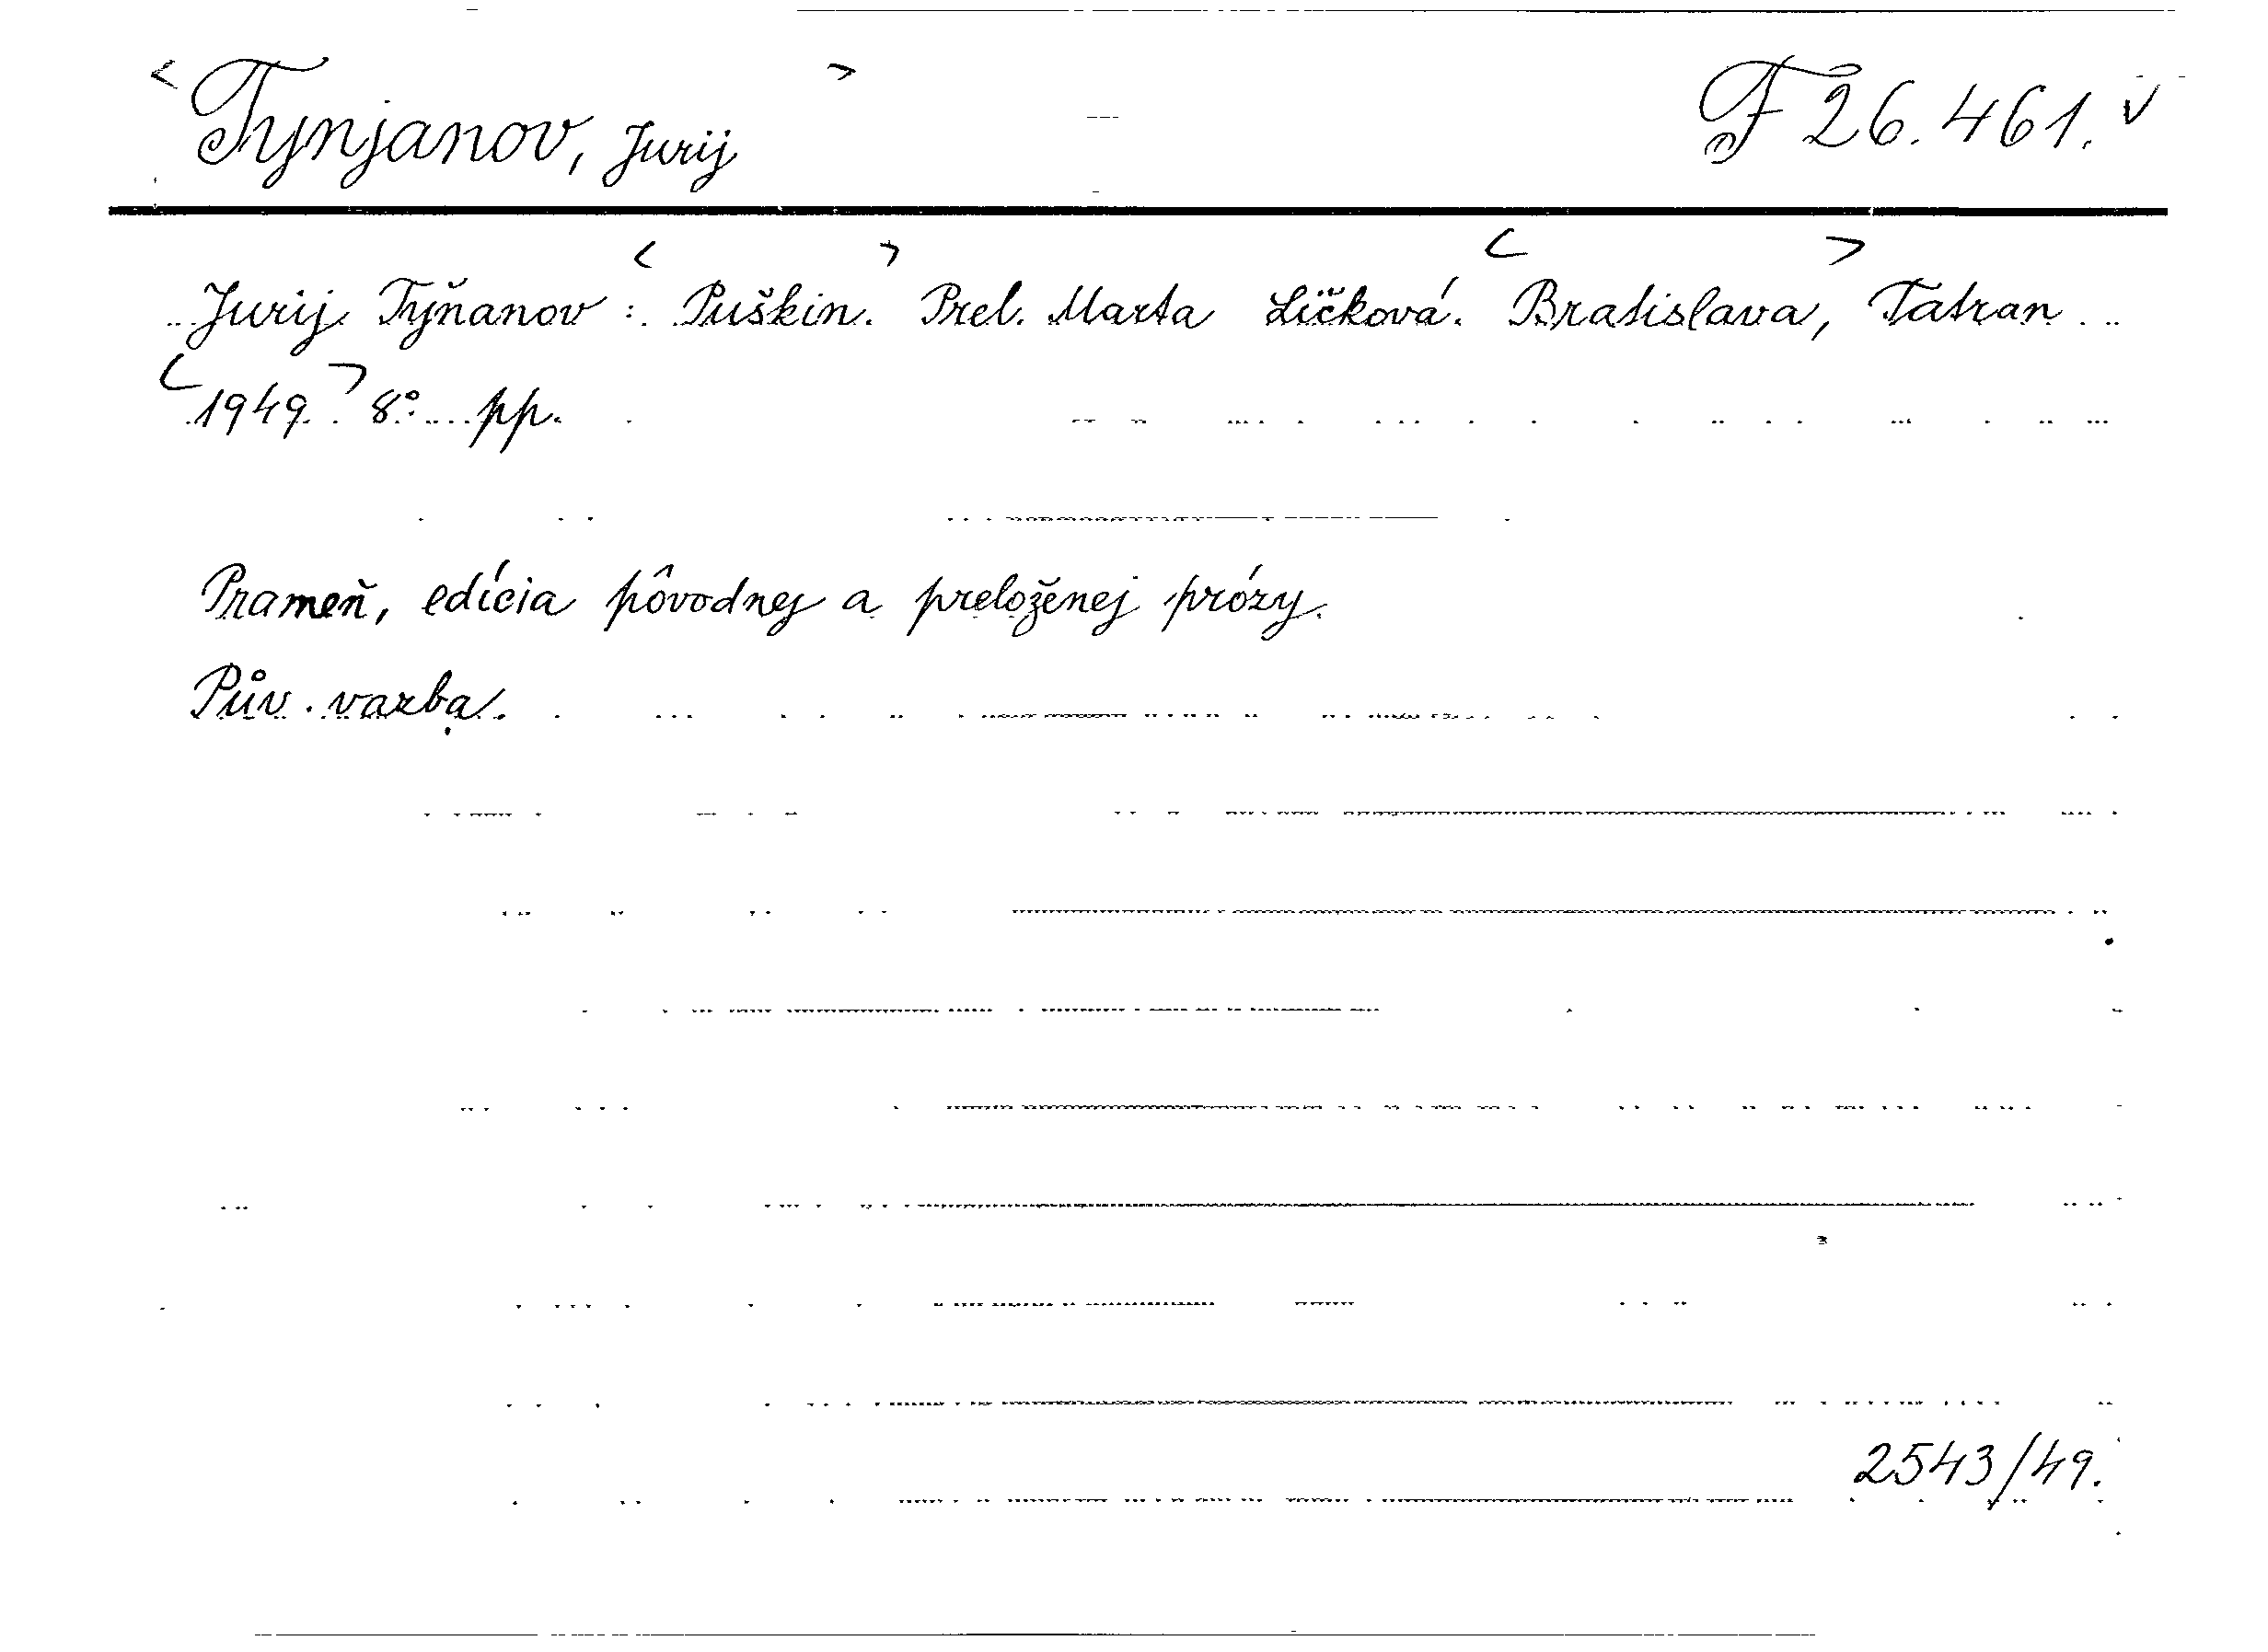 <Tynjanov, Jurij> F 26.461.
Jurij Tyňanov: <Puškin.> Prel. Marta Ličková. <Bratislava,> Tatran
<1949.> 8° pp.
Prameň, edícia pôvodnej a preloženej prózy.
Pův. vazba.
2543/49.